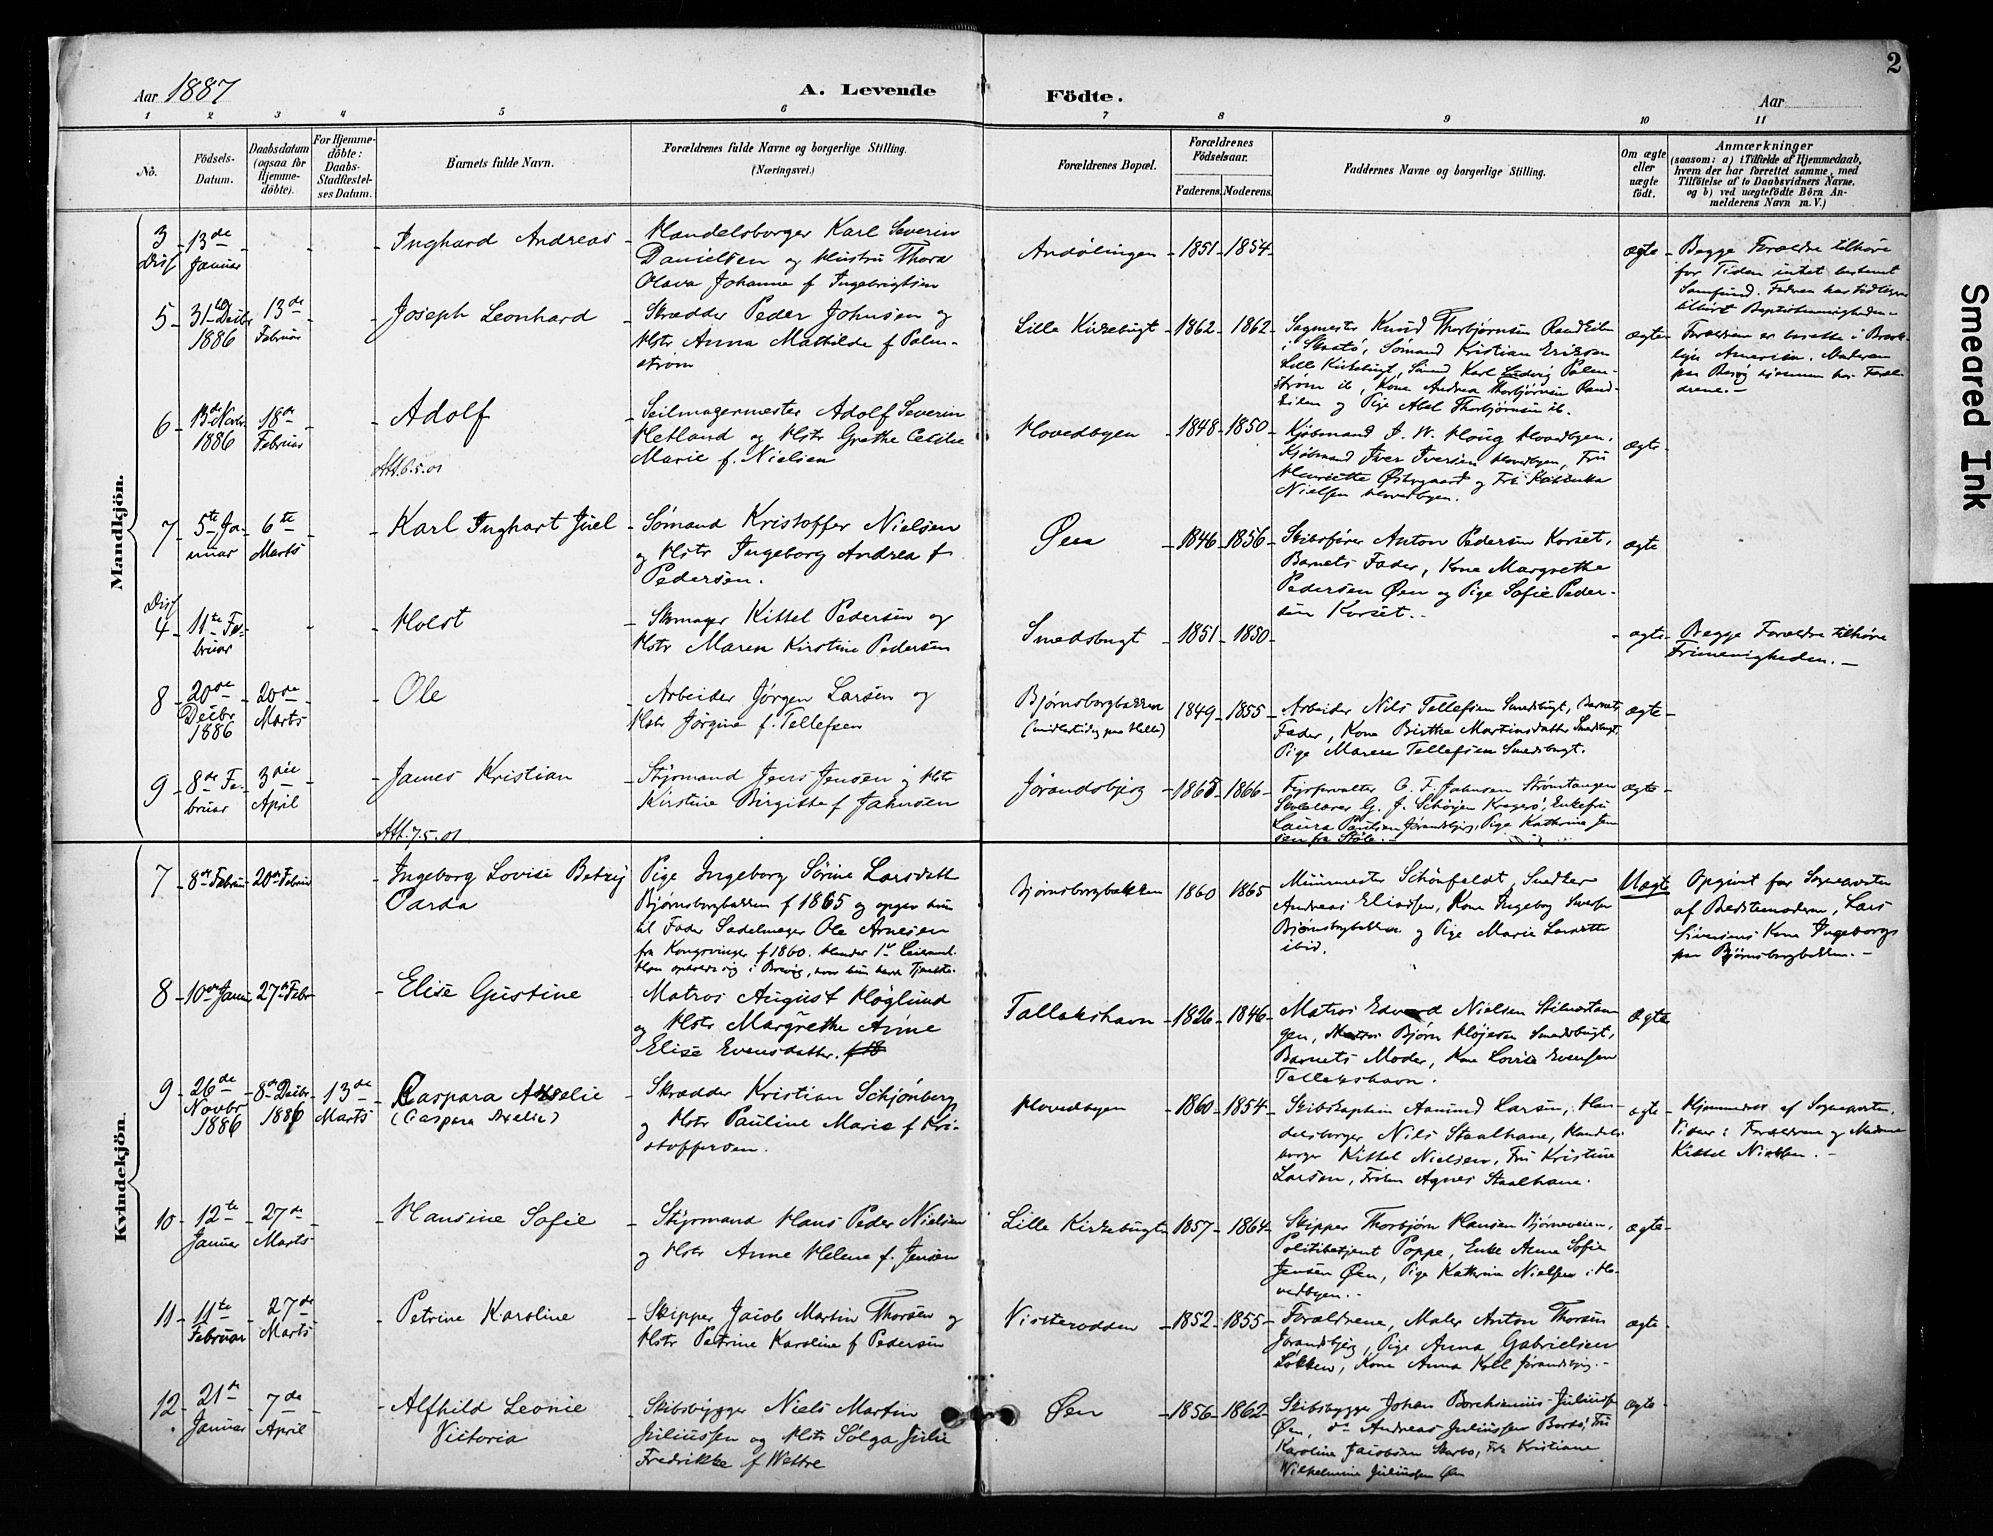 2
Aar 1887
A. Levende
Födte.
Aar
1 2 3 4 5 6 7 8 9 10 11
No.
Födsels-Datum.
Daabsdatum (ogsaa for Hjemme-döbte).
For Hjemme-döbte: Daabs-Stadfæstel-ses Datum.
Barnets fulde Navn.
Forældrenes fulde Navne og borgerlige Stilling. (Næringsvei.)
Forældrenes Bopæl.
Forældrenes Födselsaar.
Faderens. Moderens.
Faddernes Navne og borgerlige Stilling.
Om ægte eller uægte födt.
Anmærkninger
(saasom: a) i Tilfælde af Hjemmedaab,
hvem der har forrettet samme, med
Tilföielse af to Daabsvidners Navne,
og b) ved uægtefödte Börn An-
melderens Navn m. V.)
Mandkjön.
3 Diss 13de Januar
Inghard Andreas
Handelsborger Karl Severin
Danielsen og Hustru Thora
Olava Johanne f Ingebrigtsen
1851 1854
ægte
Begge Forældre tilhøre
for Tiden intet bestemt
Samfund. Faderen har tidligere
tilhørt Baptistmenigheden
5 31te Decbr 1886 13de Februar
Joseph Leonhard
Skrædder Peder Johnsen og
Hstr Anna Mathilde f Palm-
strøm
Lille Kirkebugt
1862 1862
Sagmester Knud Thorbjørnsen
Sømand Kristian Eriksen
Lille Kirkebugt, Sømd Karl Ludvig Palm-
strøm ib, Kone Andrea Thorbjørnsen
og Pige Abel Thorbjørnsen ib.
ægte
Forældrene er bosatte i Brook-
lyn Amerika. Moderen
paa Besøg hjemme hos Foræl-
drene.
6 13de Novbr 1886 18de Februar
Adolf
Att. 6.5.01
Seilmagermester Adolf Severin
Hetland og Hstr Grethe Cecilie
Marie f. Nielsen
Hovedbyen
1848 1850
Kjøbmand J. W. Houg Hovedbyen,
Kjøbmand Iver Iversen Hovedbyen, Fru
Henriette Østergaard og Frk
Nielsen Hovedbyen.
ægte
7 5te Januar 6te Marts
Karl Inghart Juel
Sømand Kristoffer Nielsen
og Hstr Ingeborg Andrea f
Pedersen.
Øen
1846 1856
Skibsfører Anton Pedersen Korset,
Barnets Fader, Kone Margrethe
Pedersen Øen og Pige Sofie Peder-
sen Korset.
ægte
Diss 4 11te Februar
Holst
Skomager Kittel Pedersen og
Hstr Maren Kirstine Pedersen
Smedsbugt
1851 1850
ægte
Begge Forældre tilhøre
Frimenigheden.
8 20de Decbr 1886 20de Marts
Ole
Arbeider Jørgen Larsen og
Hstr Jørgine f. Tellefsen
Bjørnsborgbakken
(midlertidig paa Helle)
1849 1855
Arbeider Nils Tellefsen Smedsbugt, Barnets
Fader, Kone Birthe Martinsdatter Smedsbugt,
Pige Maren Tellefsen Smedsbugt.
ægte
9 8de Februar 3die April
James Kristian
Att. 7.5.01
Styrmand Jens Jensen og Hstr
Kirstine Birgitte f Jahnsen
Jørandsbjerg
1865 1866
Fyrforvalter C. F. Jahnsen Strømtangen
Skolelærer G. J. Schøyen Kragerø, Enkefru
Laura Paulsen Jørandsbjerg, Pige Kathrine Jen-
sen fra Støle.
ægte
Kvindekjön.
7 8de Februar 20de Februar
Ingeborg Lovise Betzy
Oarda
Pige Ingeborg Sørine Larsdatt
Bjørnsborgbakken f 1865 og opgav hun
til Fader Sadelmager Ole Arnesen
fra Kongsvinger f 1860. Hendes 1ste Leiermaal.
Han opholdt sig i Brevig, hvor hun havde Tjeneste.
Bjørnsborgbakken
1860 1865
Schönfeldt, Snedker
Andreas Eliassen, Kone Ingeborg
Bjørnsborgbakken og Pige Marie Larsdatter
ibid.
Uægte
Opgivet for Sognepræsten
af Bedstemoderen, Lars
Siversens Kone Ingeborg
paa Bjørnsborgbakken.
8 10de Januar 27de Febr
Elise Gustine
Matros August Høglund
og Hstr Margrethe Anne
Elise Evensdatter.
Tallakshavn
1826 1846
Matros Edvard Nielsen Stilnestan-
gen, Matros Bjørn Højesen Smedsbugt,
Barnets Moder, Kone Lovise Evensen
Tallakshavn.
ægte
9 26de Novbr 1886 8de Decbr 1886 13de Marts
Caspara Axelie
(Caspara Axelie)
Skrædder Kristian Schjønberg
og Hstr Pauline Marie f Kri-
stoffersen.
Hovedbyen
1860 1854
Skibskaptein Aamund Larsen, Han-
delsborger Nils Staalhane, Handels-
borger Kittel Nielsen, Fru Kristine
Larsen, Frøken Agnes Staalhane.
ægte
Hjemmedøbt af Sognepræsten.
Vidner: Forældrene og Madame
Kittel Nielsen.
10 12te Januar 27de Marts
Hansine Sofie
Styrmand Hans Peder Nielsen
og Hstr Anne Helene f. Jensen
Lille Kirkebugt
1857 1864
Skipper Thorbjørn Hansen Bjørneveien,
Politibetjent Poppe, Enke Anne Sofie
Jensen Øen, Pige Kathrine Nielsen i Ho-
vedbyen.
ægte
11 11te Februar 27de Marts
Petrine Karoline
Skipper Jacob Martin Thorsen og
Hstr Petrine Karoline f Pedersen
1852 1855
Forældrene, Maler Anton Thorsen
Jørandsbjerg, Pige Anna Gabrielsen
Løkken, Kone Anna Koll Jørandsbjerg.
ægte
12 21de Januar 7de April
Alfhild Leonie
Victoria
Skibsbygger Niels Martin
Juliussen og Hstr Solga Julie
Fredrikke f Wettre
Øen
1856 1862
Skibsbygger Johan Borchinius Juliussen
Øen, do Andreas Juliussen Barbø, Fru
Karoline Jacobsen Skarbo, Frk Kristiane
Wilhelmine Juliussen Øen
ægte
Smeared Ink